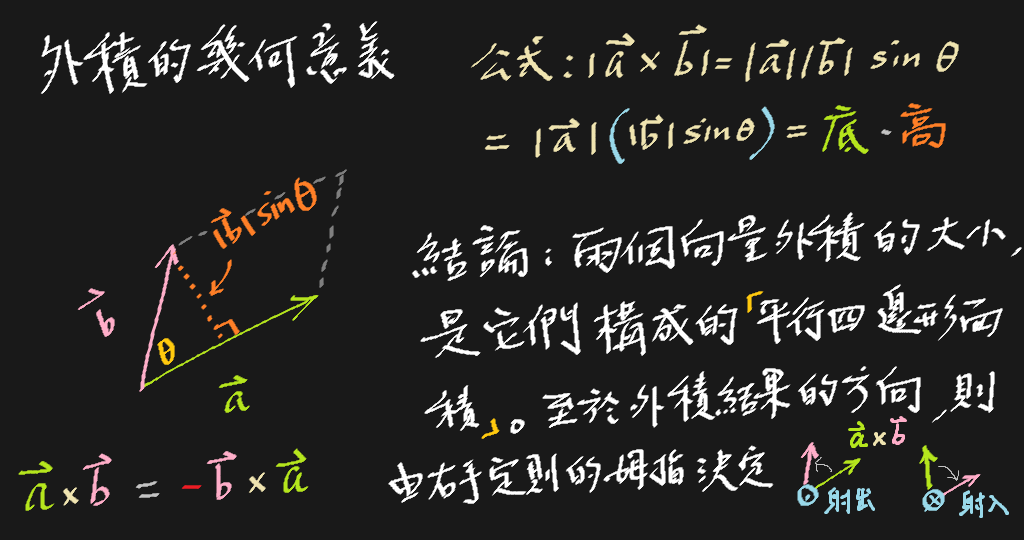 外積的幾何意義
公式:|a⃗ × b⃗| = |a⃗||b⃗| sin θ
= |a⃗|(|b⃗| sin θ) = 底 · 高
|b⃗| sin θ
b⃗
θ
a⃗
a⃗ × b⃗ = -b⃗ × a⃗
結論:兩個向量外積的大小,
是它們構成的「平行四邊形面
積」。至於外積結果的方向,則
由右手定則的拇指決定
a⃗ × b⃗
射出
射入